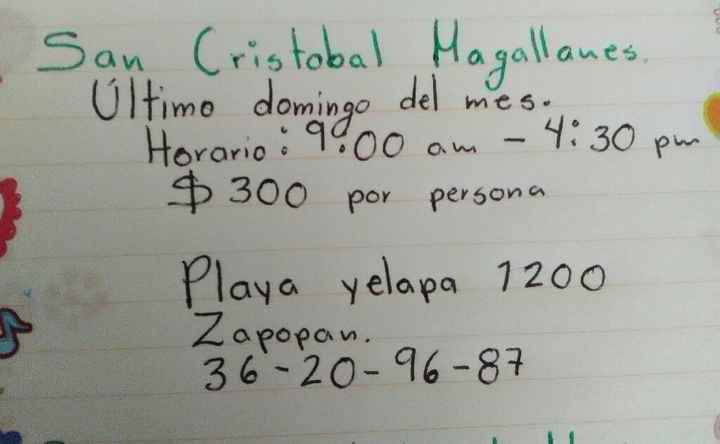 San Cristobal Magallanes.
Último domingo del mes.
Horario: 9:00 am - 4:30 pm
$300 por persona
Playa yelapa 1200
Zapopan.
36-20-96-87